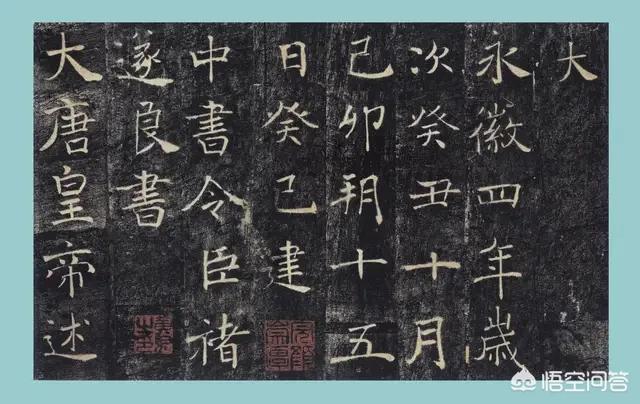 大
永徽四年歲
次癸丑十月
己卯朔十五
日癸巳建
中書令臣褚
遂良書
大唐皇帝述
悟空问答